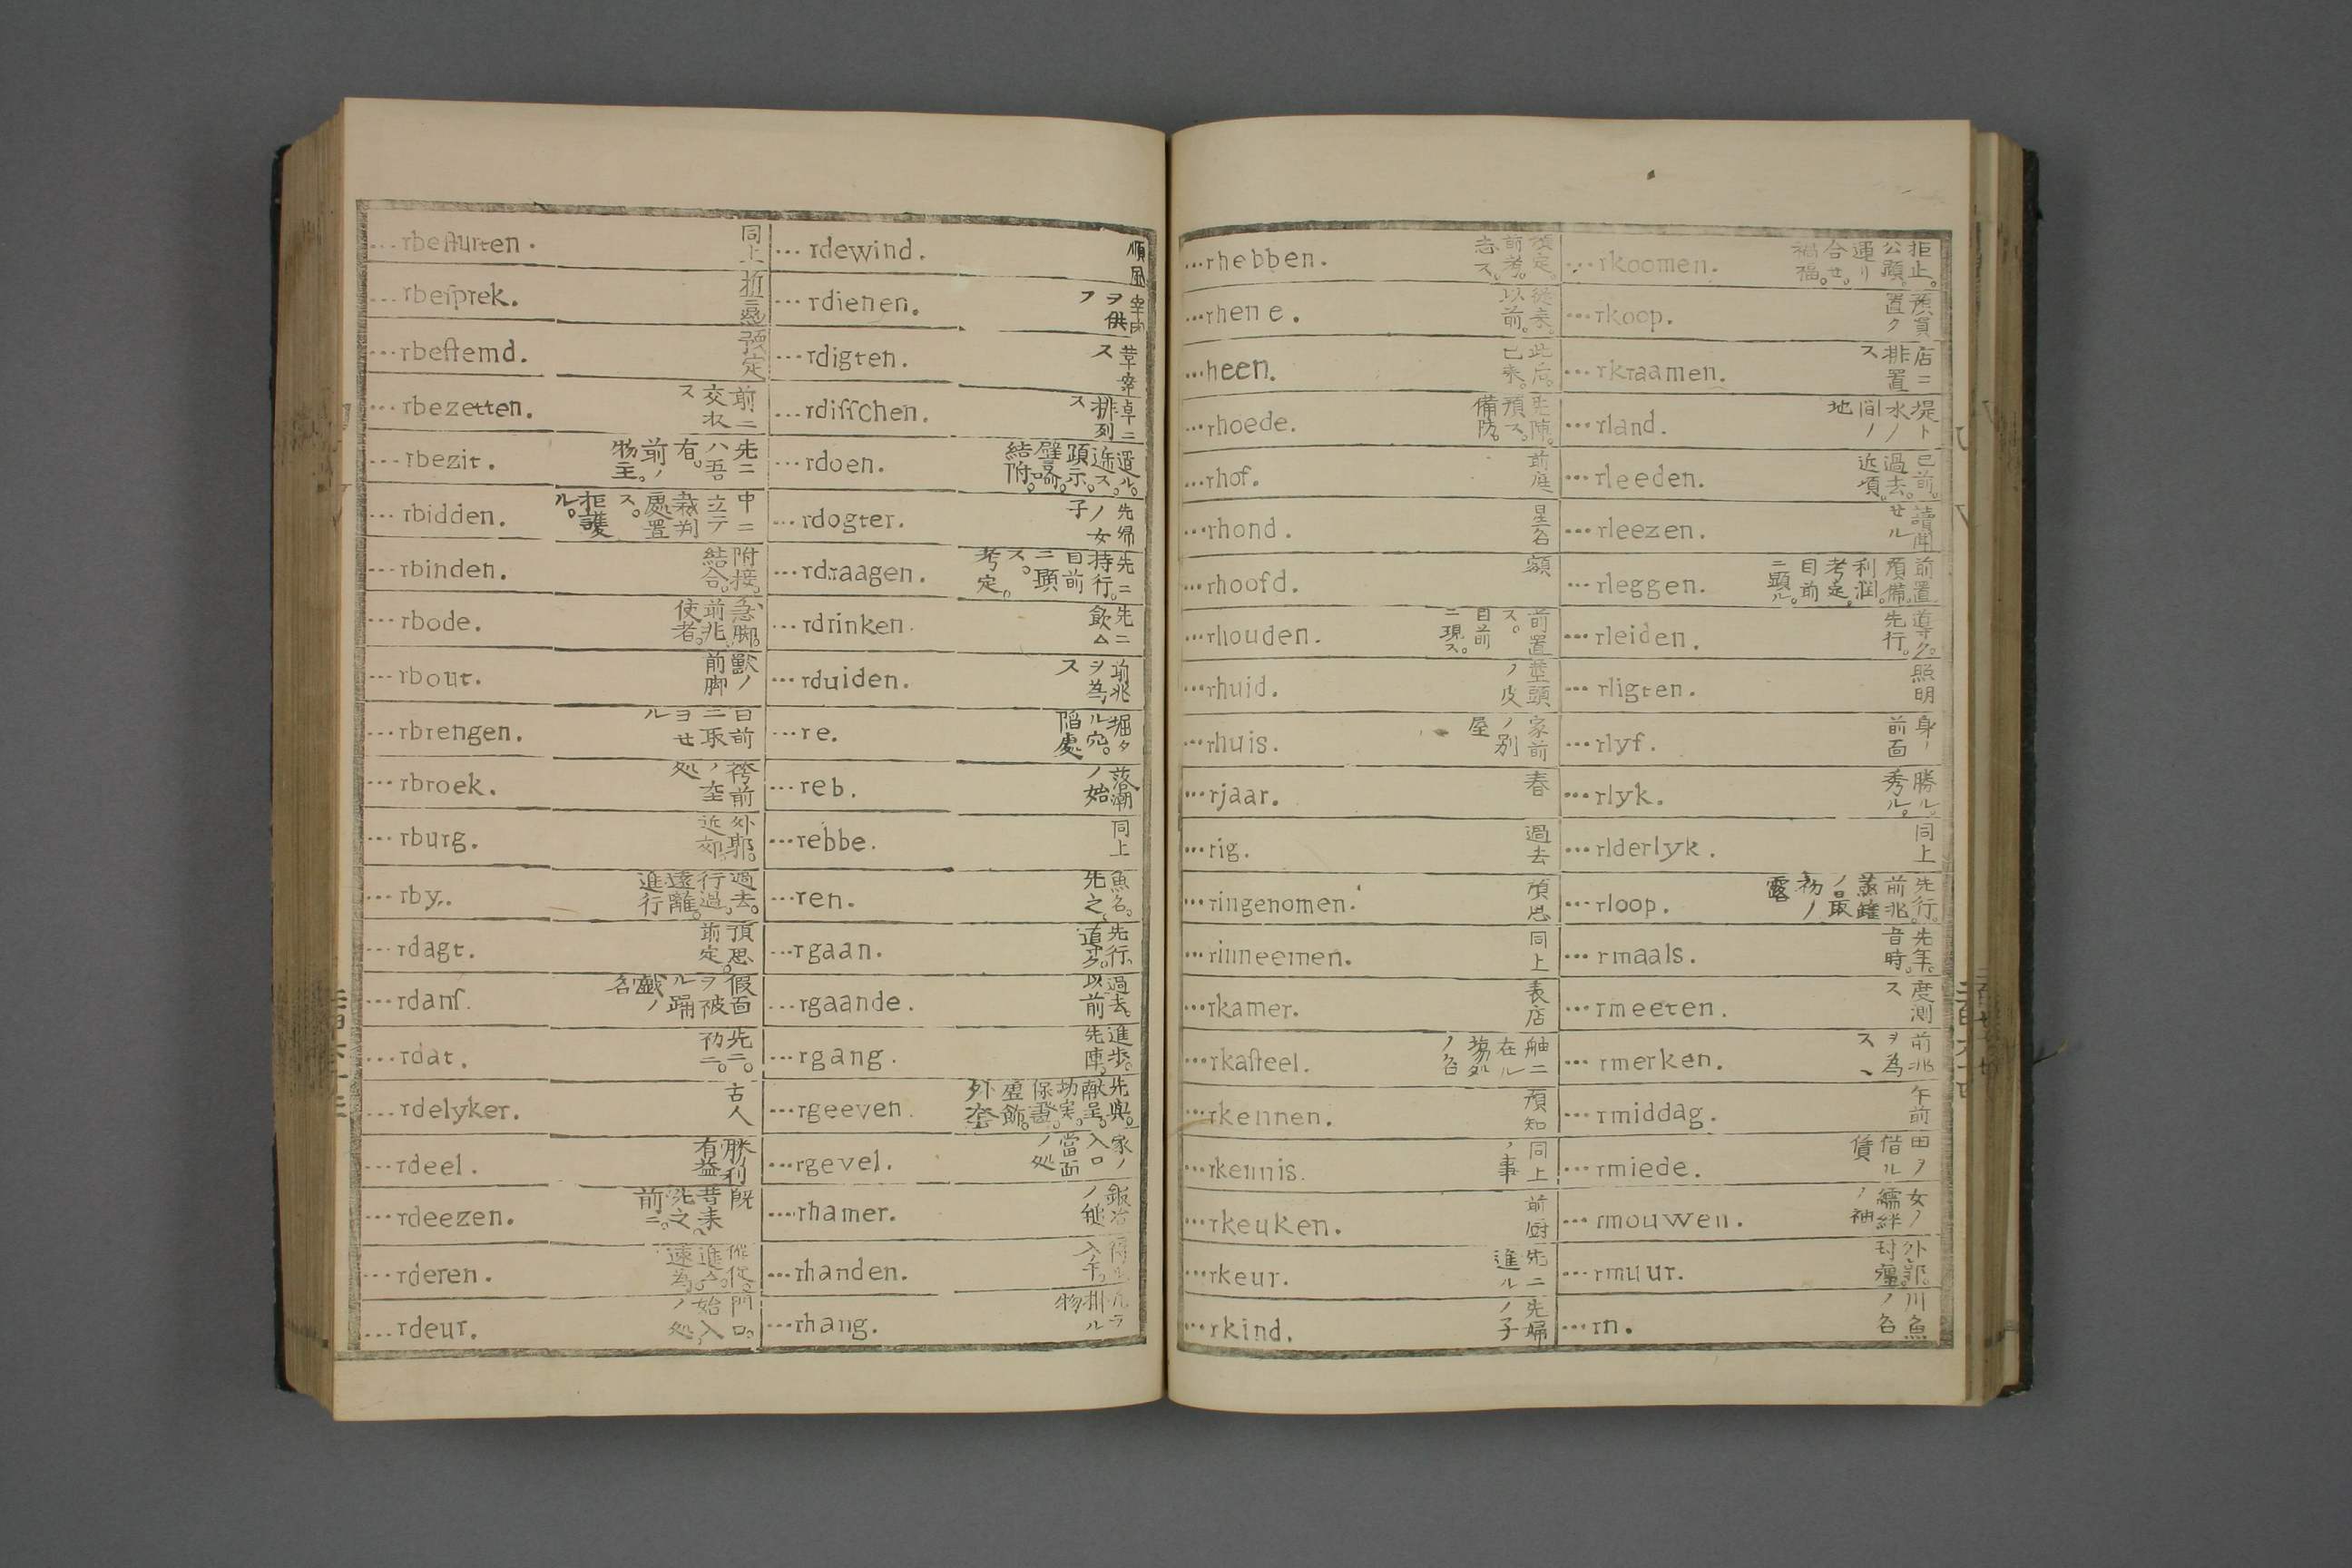 ...rbeſturten. 同上
...rbeſprek.
...rbeſtemd. 預定
...rbezetten. 前ニ交衣ス
...rbezit. 先ニハ吾有。前ノ物主。
...rbidden. 中ニ立テ裁判處置ス。拒護ル。
...rbinden. 附接。結合。
...rbode. 急脚。前兆使者。
...rbout. 獸ノ前脚
...rbrengen. 目前ニ取ヨせル
...rbroek. 袴前ノ空処
...rburg. 外郭。近郊。
...rby. 過去。行過。遠離。進行
...rdagt. 預思。前定。
...rdanſ. 假面ヲ被ル踊戲ノ名
...rdat. 先ニ。初ニ。
...rdelyker. 古人
...rdeel. 勝利有益
...rdeezen. 既昔来先之。前ニ。
...rderen.
...rdeur. 門口。始入ノ処
...rdewind. 順風
...rdienen.
...rdigten.
...rdiſſchen. 卓ニ排列ス
...rdoen.
...rdogter. 先婦ノ女子
...rdraagen. 先ニ持行。目前ニ顕ス。考定。
...rdrinken. 先ニ飲ム
...rduiden. 前兆ヲ為ス
...re. 掘タル穴。陷處
...reb. 落潮ノ始
...rebbe. 同上
...ren. 魚名。先之
...rgaan. 先行。導ク。
...rgaande. 過去以前
...rgang. 進歩。先陣。
...rgeeven.
...rgevel. 家ノ入口當面ノ処
...rhamer. 鍛冶ノ鎚
...rhanden.
...rhang.
...rhebben. 預定。前考。志ス。
...rhene. 従来。以前。
...heen. 此后。已来。
...rhoede. 先陣。預ス。備防。
...rhof. 前庭
...rhond. 星名
...rhoofd. 額
...rhouden. 前置ス。目前ニ現ス。
...rhuid. 莖頭ノ皮
...rhuis. 家前ノ別屋
...rjaar. 春
...rig. 過去
...ringenomen. 預思
...rinneemen. 同上
...rkamer. 表店
...rkaſteel. 舳ニ在ル処ノ名
...rkennen. 預知
...rkennis. 同上ノ事
...rkeuken. 前廚
...rkeur. 先ニ進ル
...rkind. 先婦ノ子
...rkoomen. 拒止。公顕。運リ合せ。禍福。
...rkoop. 預買置ク
...rkraamen. 店ニ排置ス
...rland. 堤ト水ノ間ノ地
...rleeden. 已前。過去。近頃。
...rleezen. 讀聞せル
...rleggen. 前置預備。利潤。考定。目前ニ顕ル。
...rleiden. 導ク。先行。
...rligten. 照明
...rlyf. 身ノ前面
...rlyk. 勝ル。秀ル。
...rlderlyk. 同上
...rloop. 先行。前兆。蒸鑵ノ最初ノ露
...rmaals. 先年。昔時。
...rmeeten. 度測ス
...rmerken. 前兆ヲ為ス
...rmiddag. 午前
...rmiede. 田ヲ借ル賃
...rmouwen. 女ノ襦絆ノ袖
...rmuur. 外郭。封疆。
...rn. 川魚ノ名